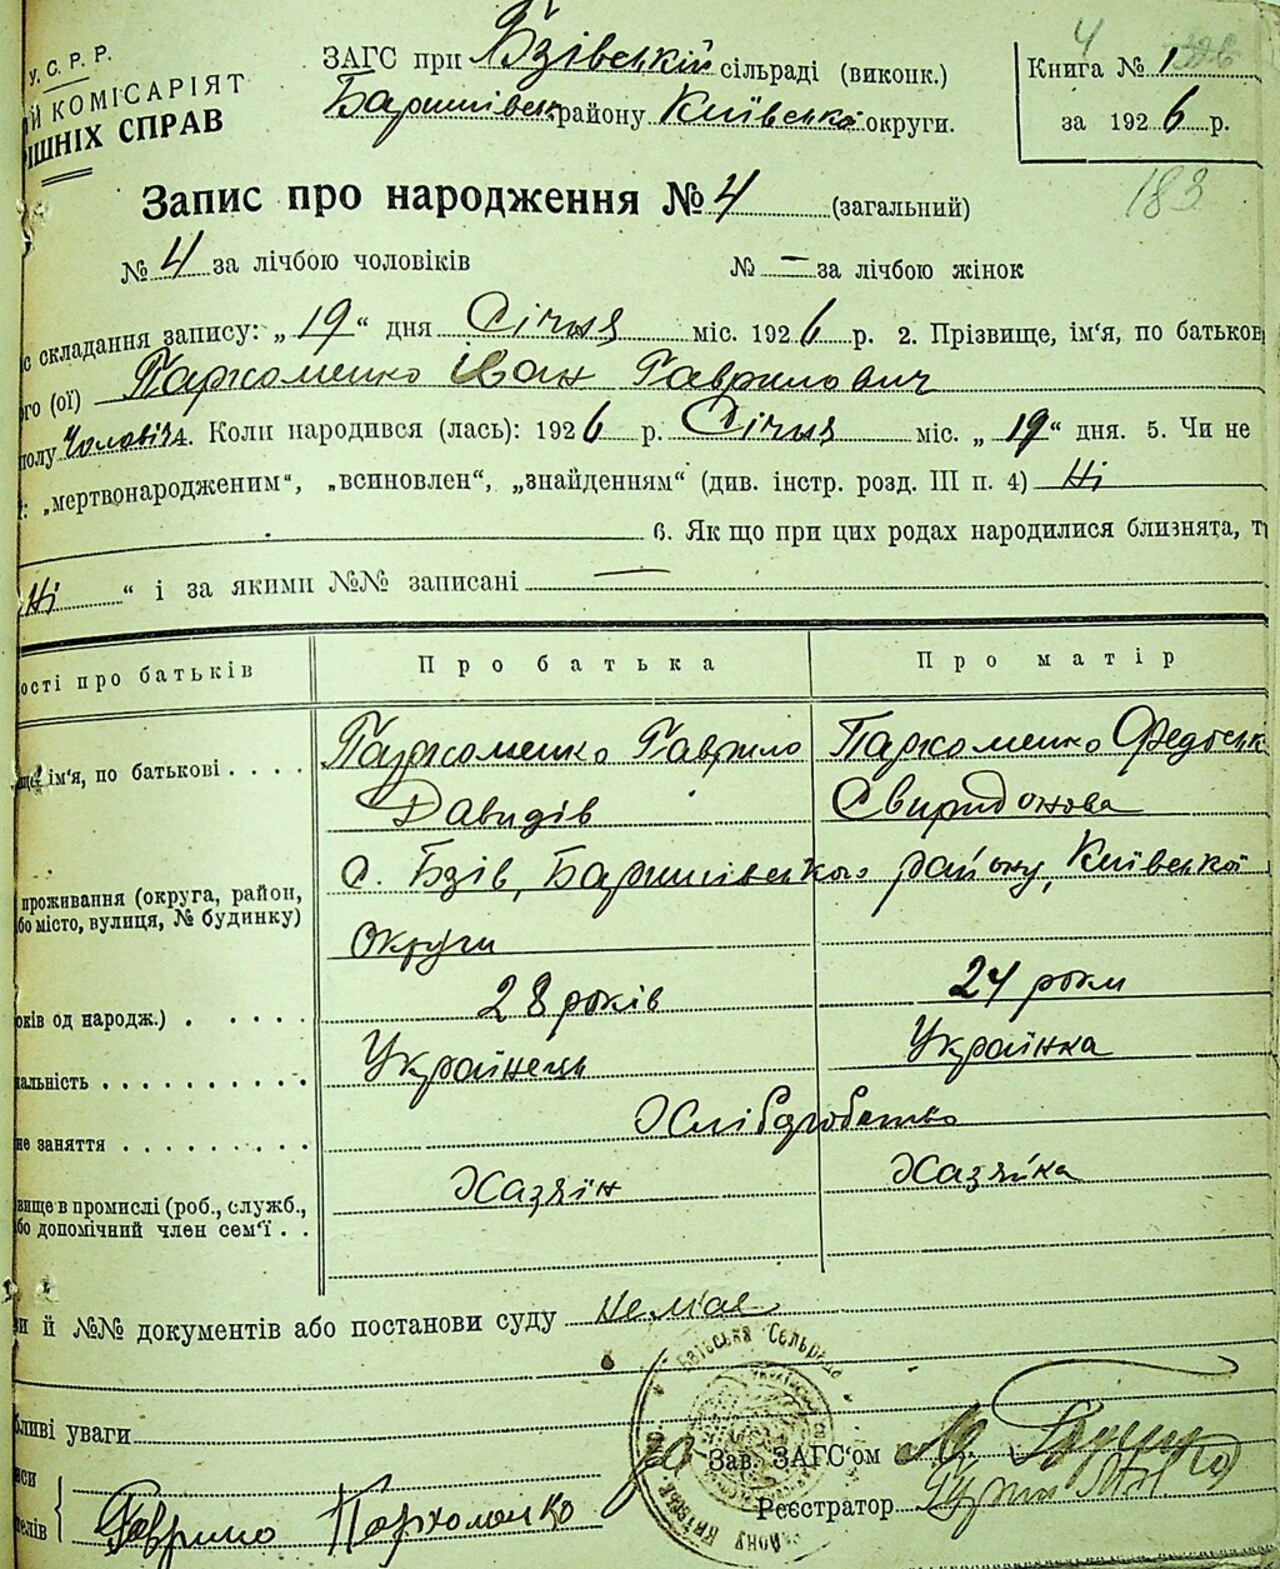 У.С.Р.Р.
Й КОМІСАРІЯТ
ІШНІХ СПРАВ
ЗАГС при Бзівській сільраді (виконк.)
Баришівськ. району Київської округи.
4
Книга № 1
за 1926 р.
183
Запис про народження № 4 (загальний)
№ 4 за лічбою чоловіків № — за лічбою жінок
с складання запису: „19“ дня Січня міс. 1926 р. 2. Прізвище, ім‘я, по батьков
го (ої) Пархоменко Іван Гаврилович
полу Чоловіч 4. Коли народився (лась): 1926 р. Січня міс. „19“ дня. 5. Чи не
: „мертвонародженим“, „всиновлен“, „знайденням“ (див. інстр. розд. III п. 4) Ні
6. Як що при цих родах народилися близнята, т
Ні “ і за якими №№ записані —
ості про батьків Про батька Про матір
ім‘я, по батькові . . . . Пархоменко Гаврило Пархоменко Федоськ
Давидів Свиридонова
проживання (округа, район, с. Бзів, Баришівського району, Київської
бо місто, вулиця, № будинку) Округи
оків од народж.) . . . . . 28 років 24 роки
альність . . . . . . . . . . Українець Українка
не заняття . . . . . . . . . Хліборобство
вище в промислі (роб., служб., Хазяїн Хазяйка
бо допомічний член сем‘ї . .
и й №№ документів або постанови суду немає
Бзівська Сельрада
бливі уваги
за Зав. ЗАГС‘ом
иси
Реєстратор
телів Гаврило Пархоменко